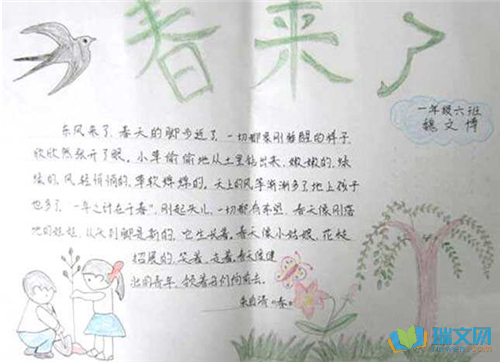 春来了
一年级六班
魏文博
东风来了，春天的脚步近了，一切都象刚睡醒的样子，
欣欣然张开了眼。小草偷偷地从土里钻出来，嫩嫩的，绿
绿的，风轻悄悄的，草软绵绵的。天上的风筝渐渐多了，地上孩子
也多了，“一年之计在于春”，刚起头儿，一切都有希望。春天像刚落
地的娃娃，从头到脚是新的，它生长着。春天像小姑娘，花枝
招展的，笑着，走着。春天像健
壮的青年，领着我们向前去。
朱自清《春》
瑞文网